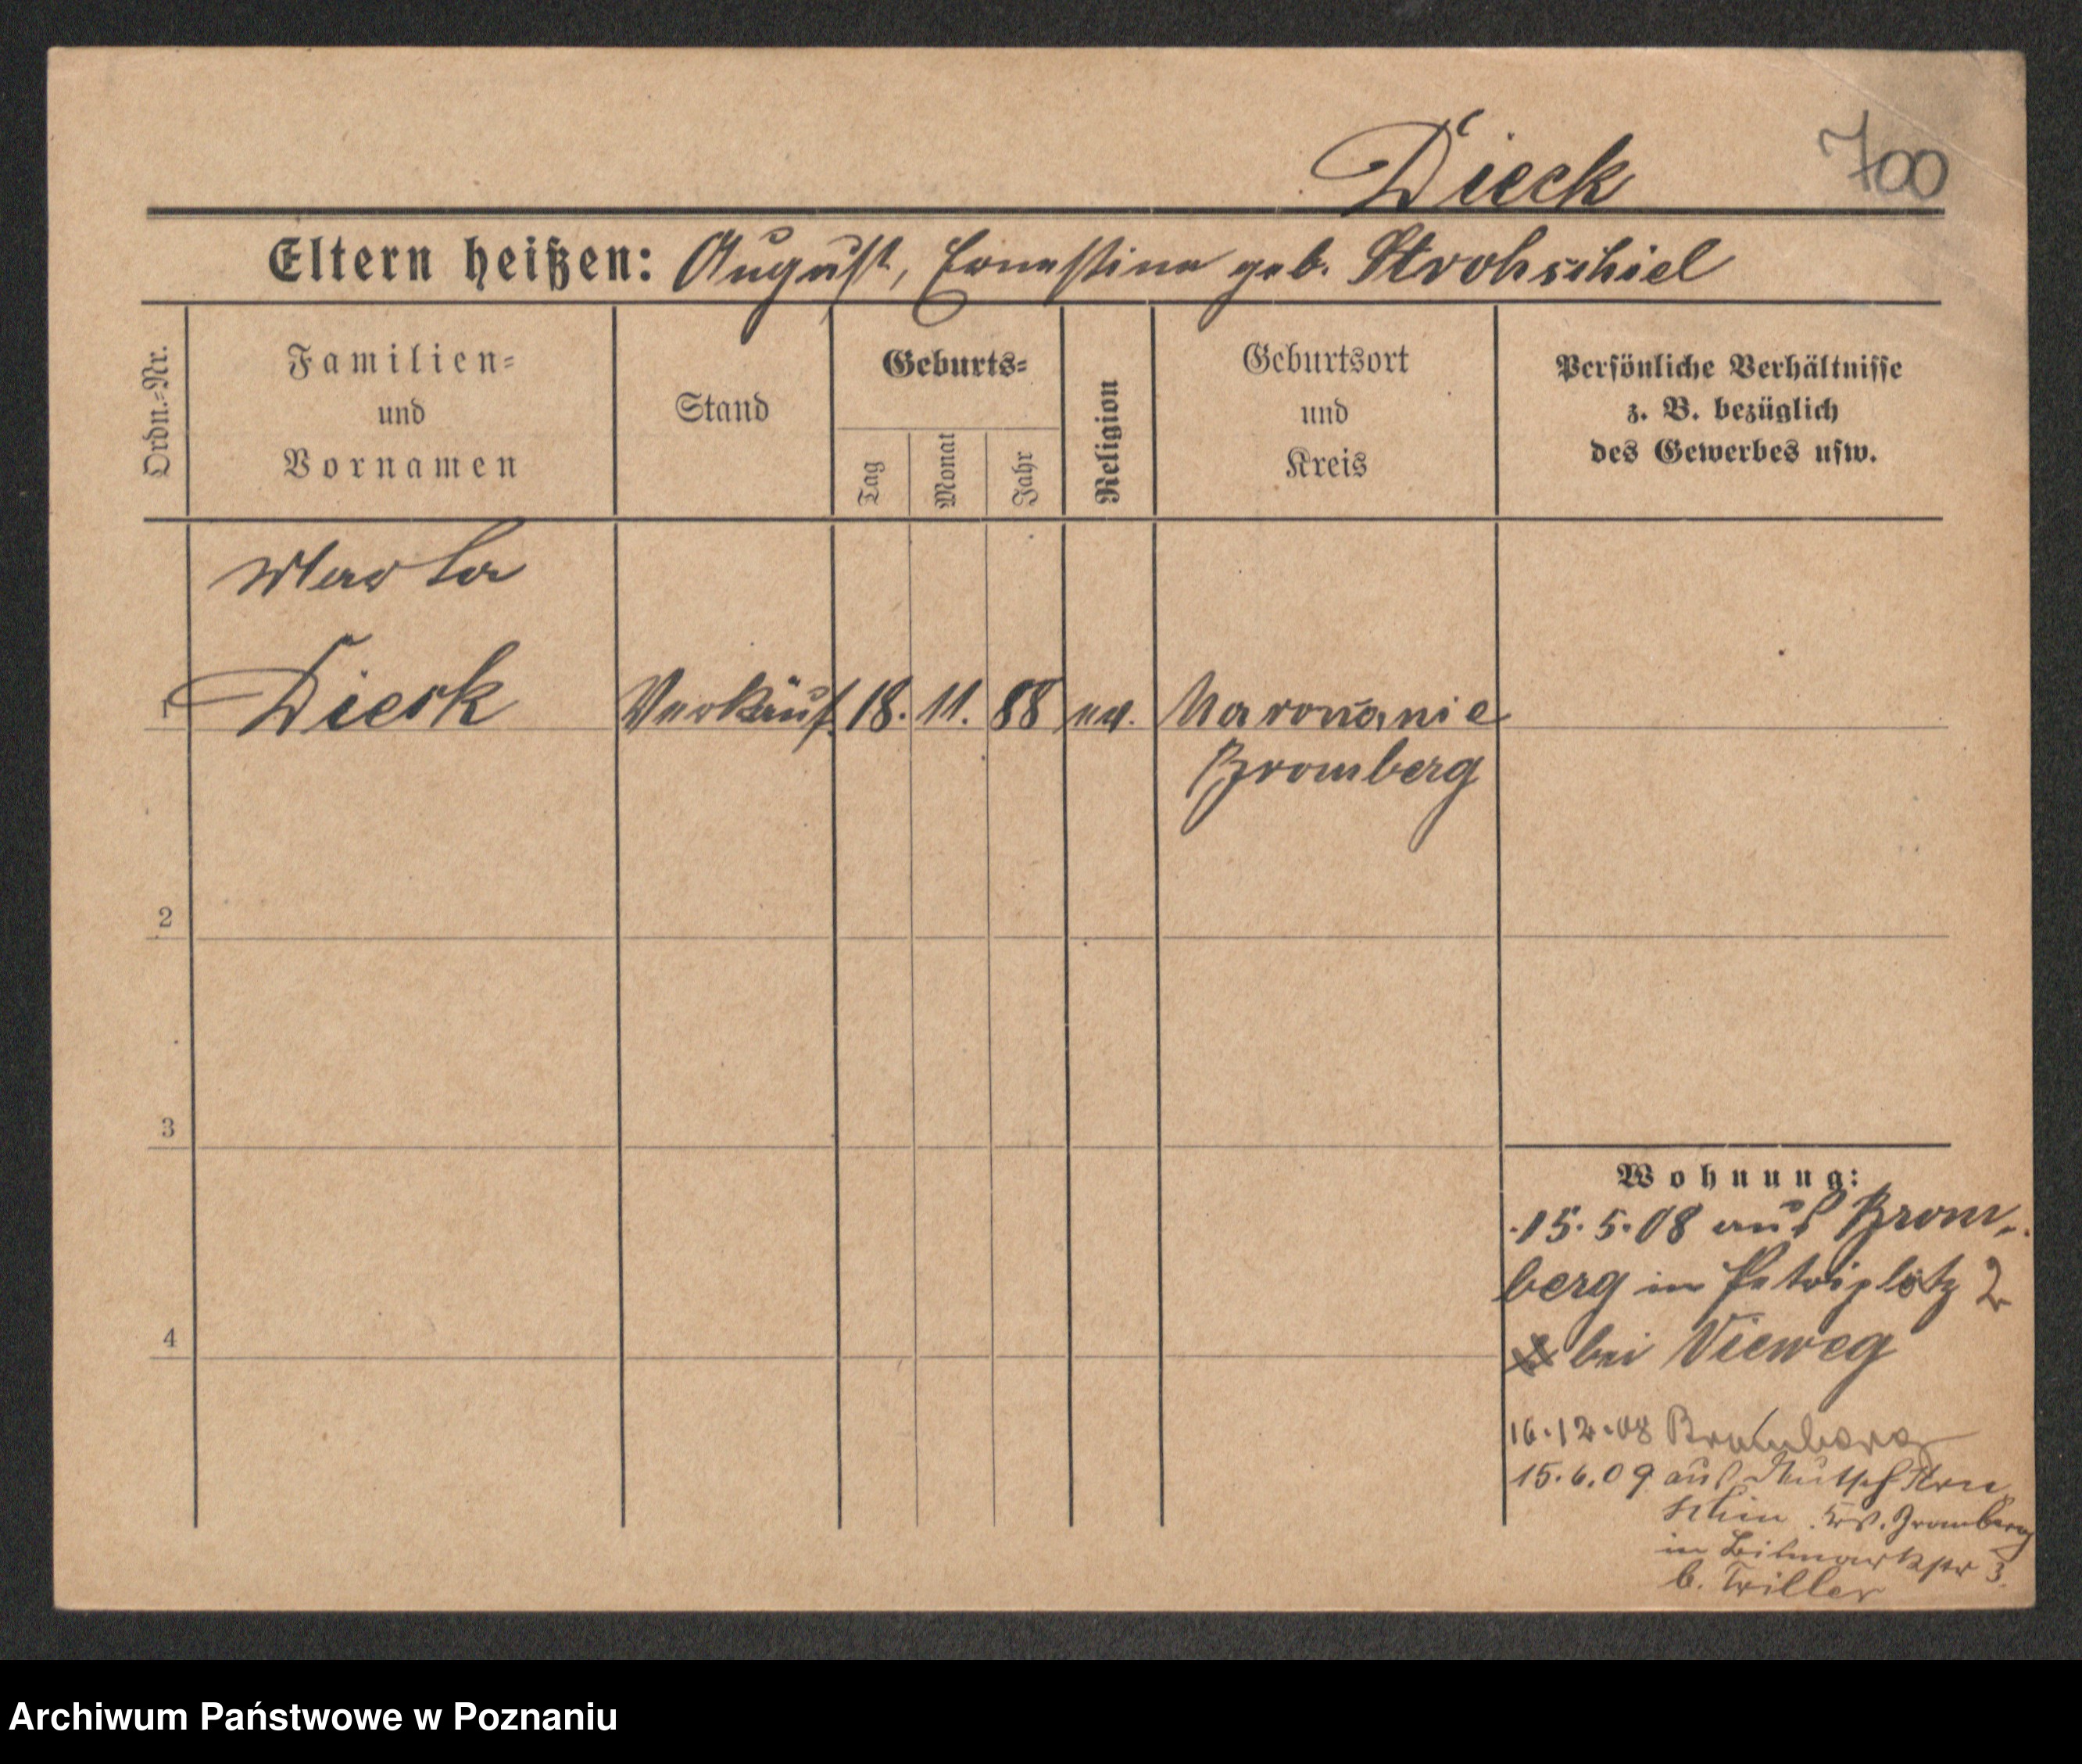 Dieck 700
Eltern heißen: August, Ernestine geb. Strohschiel
Ordn.-Nr.
Familien-
und
Vornamen
Stand
Geburts-
Tag
Monat
Jahr
Religion
Geburtsort
und
Kreis
Persönliche Verhältnisse
z. B. bezüglich
des Gewerbes usw.
Martha
1 Dieck Verkäuf. 18. 11. 88 ev.
Bromberg
2
3
4
Wohnung:
15.5.08 aus Brom-
berg in Petriplatz 2
bei Vieweg
16.12.08 Bromberg
15.6.09 aus
Krs. Bromberg
in Bismarkstr 3.
b. Triller
Archiwum Państwowe w Poznaniu